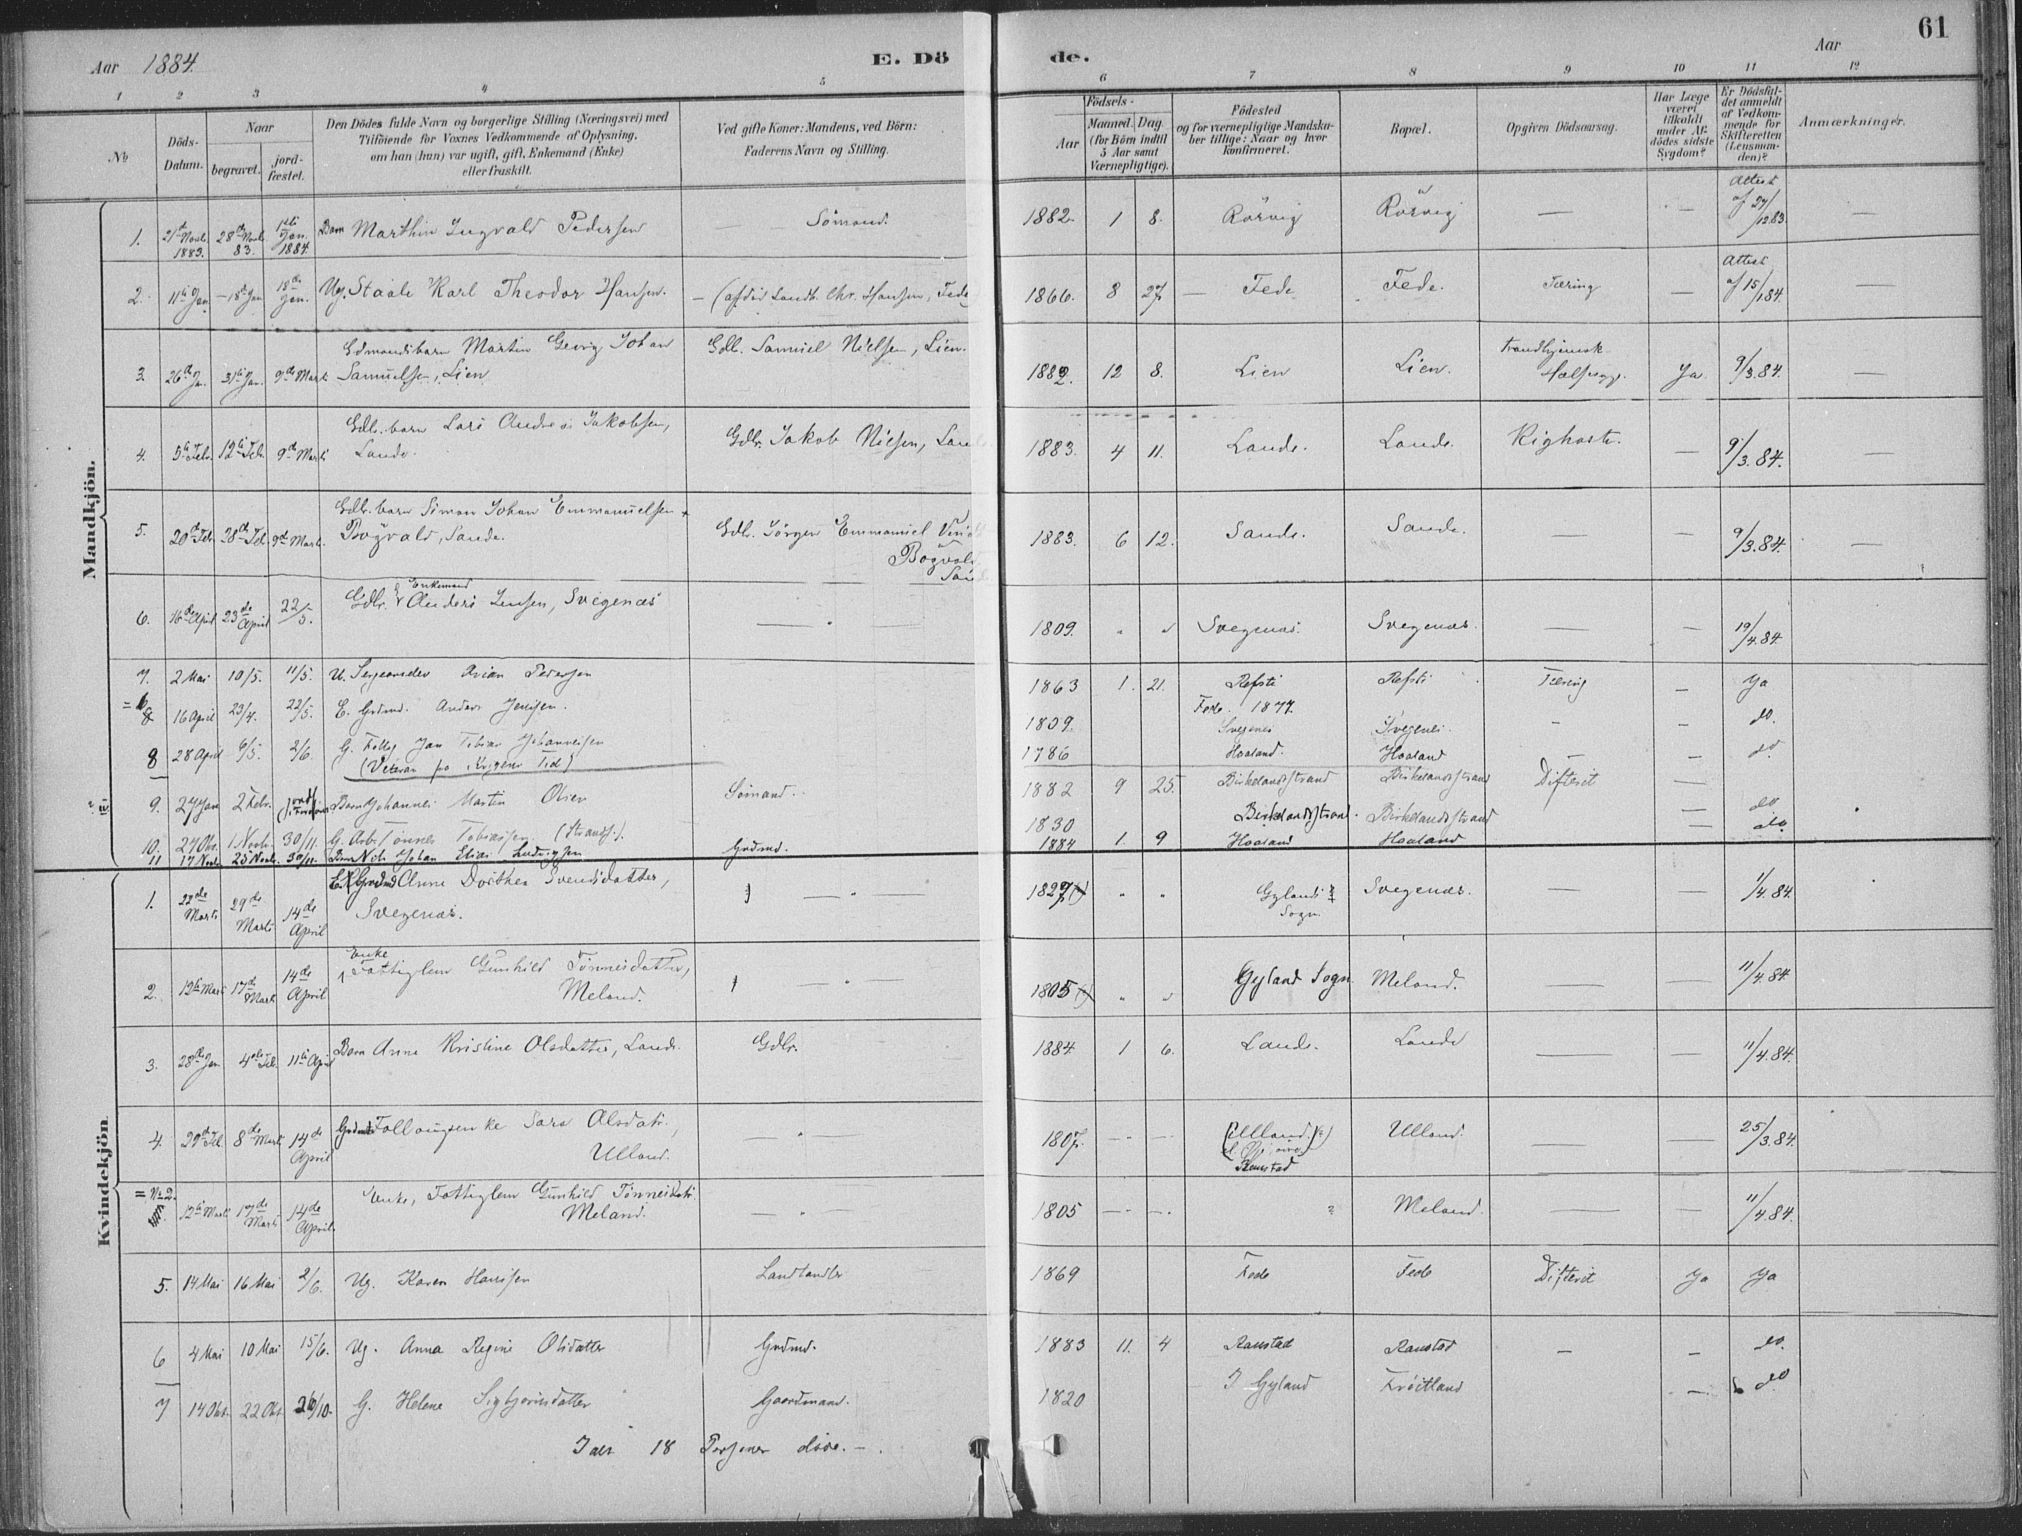 Aar 1884.
E. Dö de.
Aar
61
1 2 3 4 5 6 7 8 9 10 11 12
No
Döds-Datum.
Naar begravet. jordfæstet.
Den Dödes fulde Navn og borgerlige Stilling (Næringsvei) med
Tilföiende for Voxnes Vedkommende af Oplysning,
om han (hun) var ugift, gift, Enkemand (Enke)
eller fraskilt.
Ved gifte Koner: Mandens, ved Börn:
Faderens Navn og Stilling.
Födsels-
Aar Maaned. Dag.
(for Börn indtil 5 Aar samt Værnepligtige).
Födested
og for værnepligtige Mandskaber tillige: Naar og hvor konfirmeret.
Bopæl.
Opgiven Dödsaarsag.
Har Læge været tilkaldt under Afdödes sidste Sygdom?
Er Dödsfaldet anmeldt af Vedkommende for Skifteretten (Lensmanden)?
Anmærkninger.
Mandkjön.
1. 21de Novbr. 1883. 28de Novbr. 83. 1ste Jan. 1884. Barn Marthin Ingvald Pedersen Sömand. 1882. 1 8. Rörvig Rörvig — — Attest af 24/12 83 —
2. 11te Jan. 18de Jan. 18de Jan. Ug. Staale Karl Theodor Hansen. — (afdöd Landh. Chr. Hansen, Fede 1866. 8 27 — Fede Fede. Tæring — Attest af 15/1 84. —
3. 26de Jan. 31te Jan. 9de Marts Gdmandsbarn Martin Georg Johan
Samuelsen, Lien Gdb. Samuel Nielsen, Lien. 1882. 12 8. Lien Lien. Halssyge. Ja 9/3.84. —
4. 5te Febr. 12te Febr. 9de Marts Gdbr. barn Lars Andreas Jakobsen,
Lande. Gdbr. Jakob Nilsen, 1883. 4 11. Lande. Lande. — 9/3.84. —
5. 20de Feb. 28de Feb. 9de Marts. Gdbr. barn Simon Johan Emmanuelsen
Bögvald, Sande. Gdbr. Jörgen Emmanuel
Bögvald 1883. 6 12. Sande. Sande. — — 9/3.84. —
6. 16de April 23de April 22/5. Gdbr. Enkemand Anders Jensen, Svegenæs — " — 1809. " " Svegenæs. Svegenæs. — — 19/4.84.
7. 2 Mai 10/5. 11/5. U. Arian Pedersen 1863 1. 21. Refsti
Fede. 1877. Refsti Tæring — Ja
= 6 16 April 23/4. 22/5. E. Grdmd. Anders Jensen. 1809. Svegenes Svegenes. — — do.
8 28 April 6/5. 2/6. G. Jan Tobias Johannesen
(Veteran fra Krigens Tid) 1786 Haaland. Haaland — do.
9. 27 Jan 2 Febr. Barn Johannes Martin Olsen Sömand. 1882 9 25. Birkelandsstrand Birkelandsstrand Difterit — do
10. 27 Okt. 1 Novbr. 30/11. G. Arb. Tönnes Tobiassen. (Strandf.). 1830 Birkelandsstrand. Birkelandsstrand — do.
11 17 Novbr. 25 Novbr. 30/11. Barn Nils Johan Elias Ludvigsen Grdmd. 1884 1. 9 Haaland Haaland
Kvindekjön
1. 22de Marts 29de Marts 14de April E. Grdmd Anne Dorthea Svendsdatter,
Svegenæs. — " — 1827 " " Gylands
Sogn Svegenæs. — — 1/4.84.
2. 12te Marts 17de Marts 14de April Enke
Fattiglem Gunhild Tönnesdatter,
Meland. — " — 1805 " " Gyland Sogn Meland. — — 11/4.84
3. 28de Jan. 4de Feb. 11te April Barn Anne Kristine Olsdatter, Lande. Gdbr. 1884. 1 6. Lande. Lande — — 11/4.84.
4. 29de Feb 8de Marts 14de April Follougsenke Sara Olsdatr.,
Ulland. — " — 1807. — — (Ulland.?)
Ranstad Ulland. — — 25/3.84.
= No 2. 12te Marts 17de Marts 14de April. Enke, Fattiglem Gunhild Tönnesdatr.
Meland. — " — 1805 — — " Meland. — — 11/4.84.
5. 14 Mai 16 Mai 2/6. Ug. Karen Hansen Landhandler 1869 Fede Fede Difterit Ja Ja
6 4 Mai 10 Mai 15/6. Ug. Anna Regine Olsdatter Grdmd. 1883 11. 4 Ranstad Ranstad — — do.
7 14 Okt. 22 Okt. 26/10. G. Helene Sigbjörnsdatter Gaardmand. 1820 I Gyland Fröitland — do
I alt 18 Personer döde. —